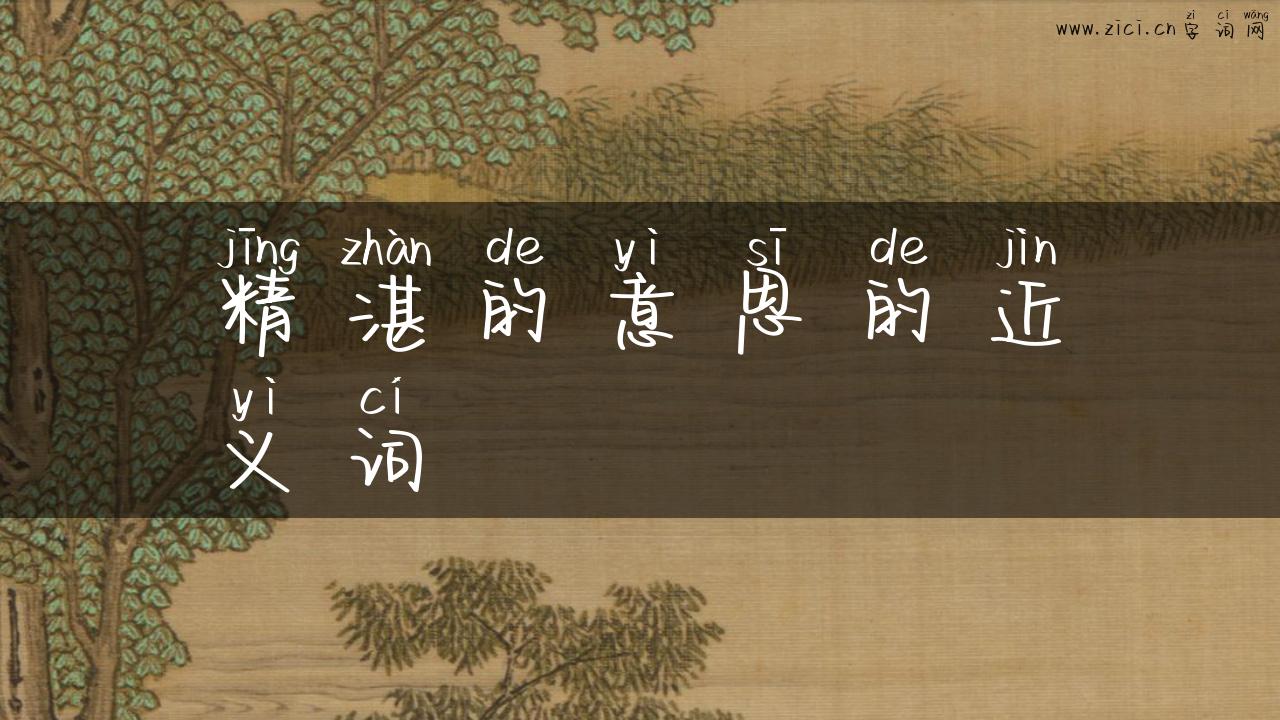 zì cí wǎng
www.zici.cn字词网
jīng zhàn de yì sī de jìn
精湛的意思的近
yì cí
义词